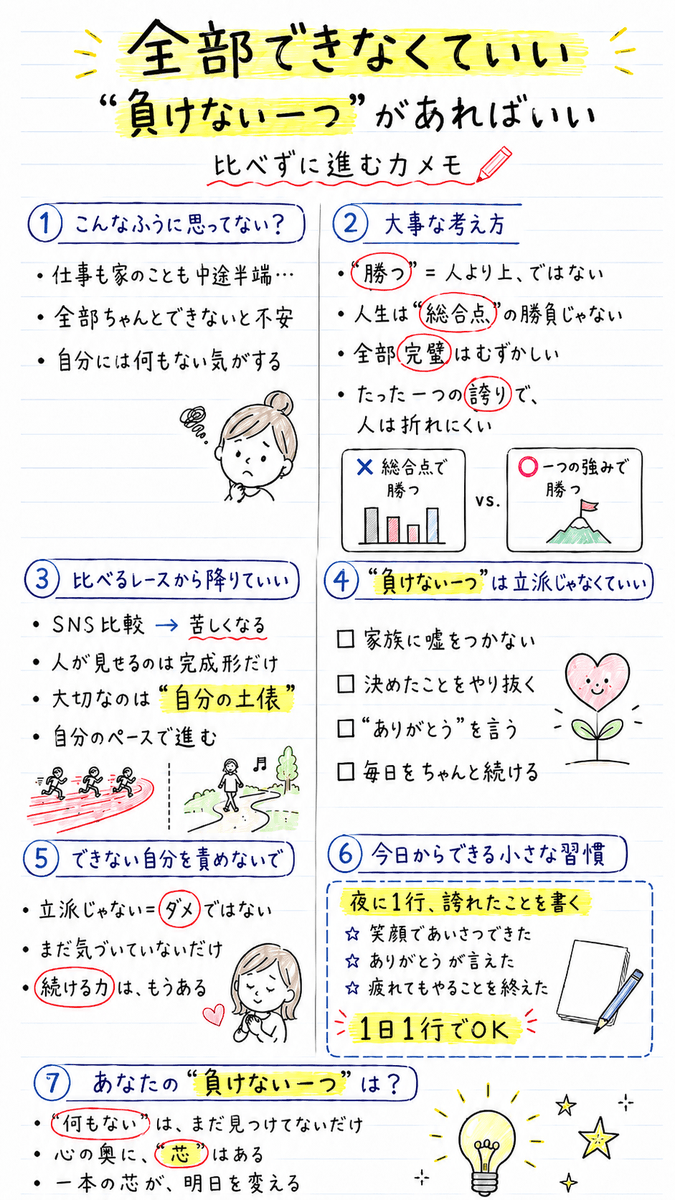 全部できなくていい
“負けない一つ”があればいい
比べずに進む力メモ
① こんなふうに思ってない？
・仕事も家のことも中途半端…
・全部ちゃんとできないと不安
・自分には何もない気がする
② 大事な考え方
・“勝つ”＝人より上、ではない
・人生は“総合点”の勝負じゃない
・全部完璧はむずかしい
・たった一つの誇りで、
人は折れにくい
× 総合点で
勝つ
vs.
○ 一つの強みで
勝つ
③ 比べるレースから降りていい
・SNS比較 → 苦しくなる
・人が見せるのは完成形だけ
・大切なのは“自分の土俵”
・自分のペースで進む
④ “負けない一つ”は立派じゃなくていい
□ 家族に嘘をつかない
□ 決めたことをやり抜く
□ “ありがとう”を言う
□ 毎日をちゃんと続ける
⑤ できない自分を責めないで
・立派じゃない＝ダメではない
・まだ気づいていないだけ
・続ける力は、もうある
⑥ 今日からできる小さな習慣
夜に1行、誇れたことを書く
☆ 笑顔であいさつできた
☆ ありがとうが言えた
☆ 疲れてもやることを終えた
1日1行でOK
⑦ あなたの“負けない一つ”は？
・“何もない”は、まだ見つけてないだけ
・心の奥に、“芯”はある
・一本の芯が、明日を変える